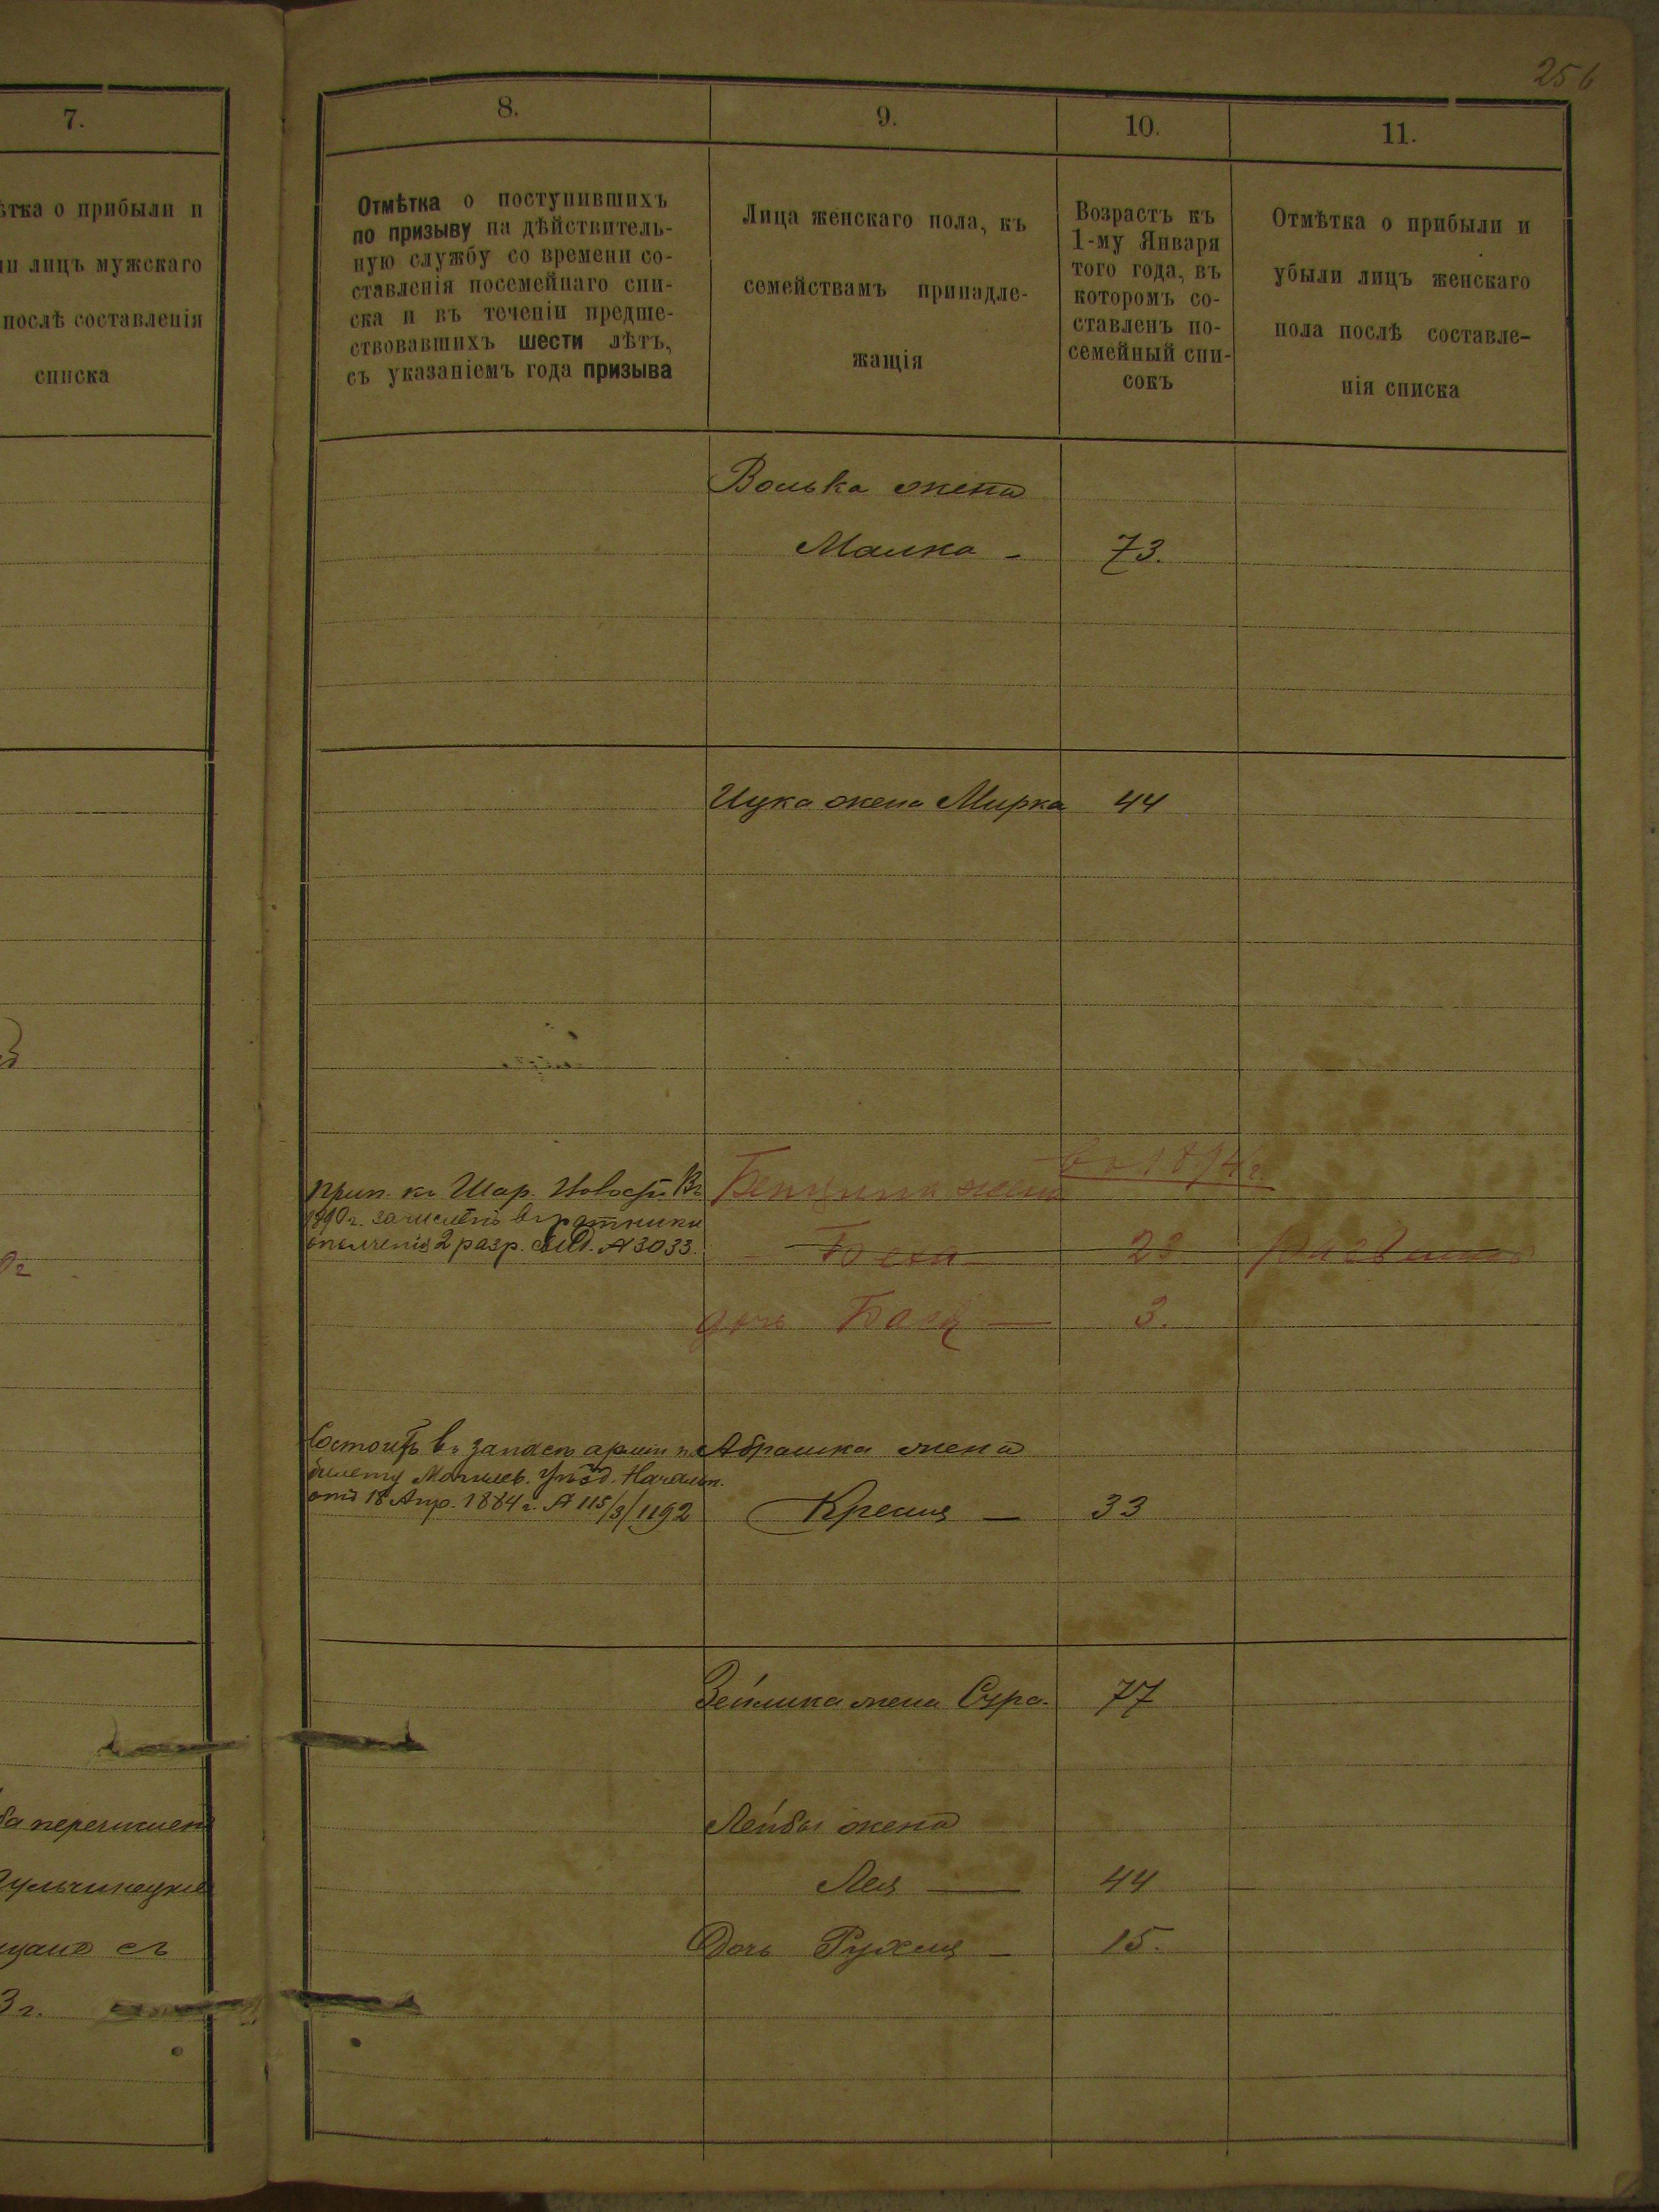 256
7.
ѣтка о прибыли и
ли лицъ мужскаго
послѣ составленія
списка
перечислен
Гульчинецкіе
съ
3 г.
8.
Отмѣтка о поступившихъ
по призыву на дѣйствитель-
ную службу со времени со-
ставленія посемейнаго спи-
ска и въ теченіи предше-
ствовавшихъ шести лѣтъ,
съ указаніемъ года призыва
9.
Лица женскаго пола, къ
семействамъ принадле-
жащія
10.
Возрастъ къ
1-му Января
того года, въ
которомъ со-
ставленъ по-
семейный спи-
сокъ
11.
Отмѣтка о прибыли и
убыли лицъ женскаго
пола послѣ составле-
нія списка
Волька жена
Малка - 73.
Ицка жена Мирка 44
1894 г.
Прип. къ Шар. Въ
1890 г. зачисленъ въ ратники
ополченія 2 разр. свид. № 3033.
Бенціина жена
23
дочь Бася — 3.
Состоитъ въ запасѣ арміи по
билету Могилев. Уѣзд. Начальн.
отъ 18 Апр. 1884 г. № 115/3/1192
Абрашка жена
Крейня — 33
Зейлика жена Сура. 77
Лейбы жена
Лея — 44
Дочь Рухля — 15.